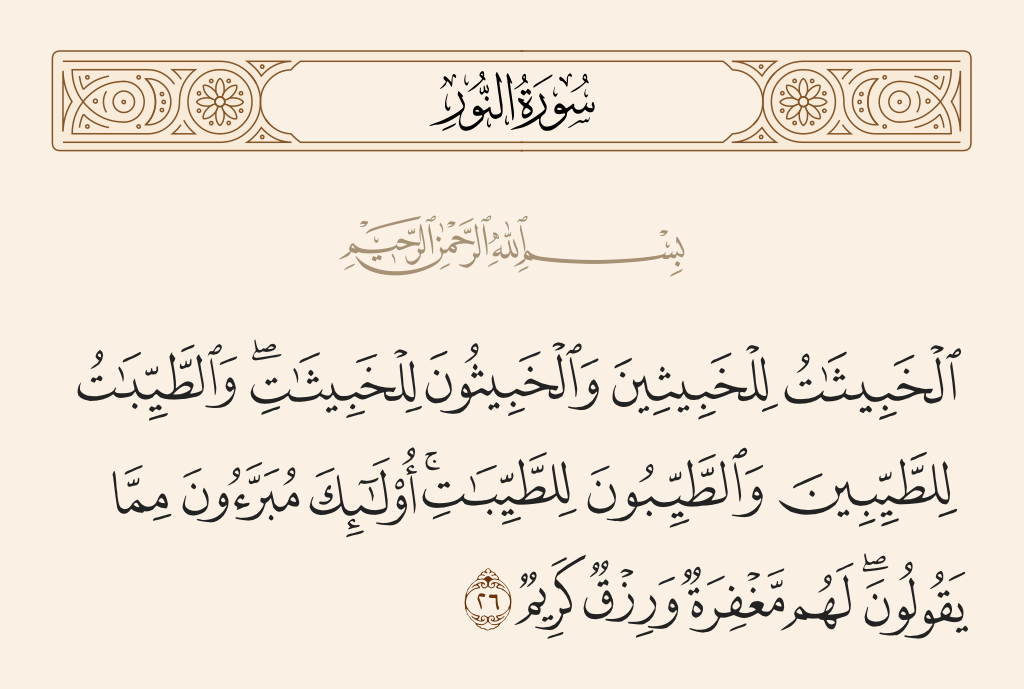 سُورَةُ النُّورِ
بِسْمِ ٱللَّهِ ٱلرَّحْمَٰنِ ٱلرَّحِيمِ
ٱلْخَبِيثَٰتُ لِلْخَبِيثِينَ وَٱلْخَبِيثُونَ لِلْخَبِيثَٰتِ ۖ وَٱلطَّيِّبَٰتُ
لِلطَّيِّبِينَ وَٱلطَّيِّبُونَ لِلطَّيِّبَٰتِ ۚ أُو۟لَٰٓئِكَ مُبَرَّءُونَ مِمَّا
يَقُولُونَ ۖ لَهُم مَّغْفِرَةٌ وَرِزْقٌ كَرِيمٌ ٢٦